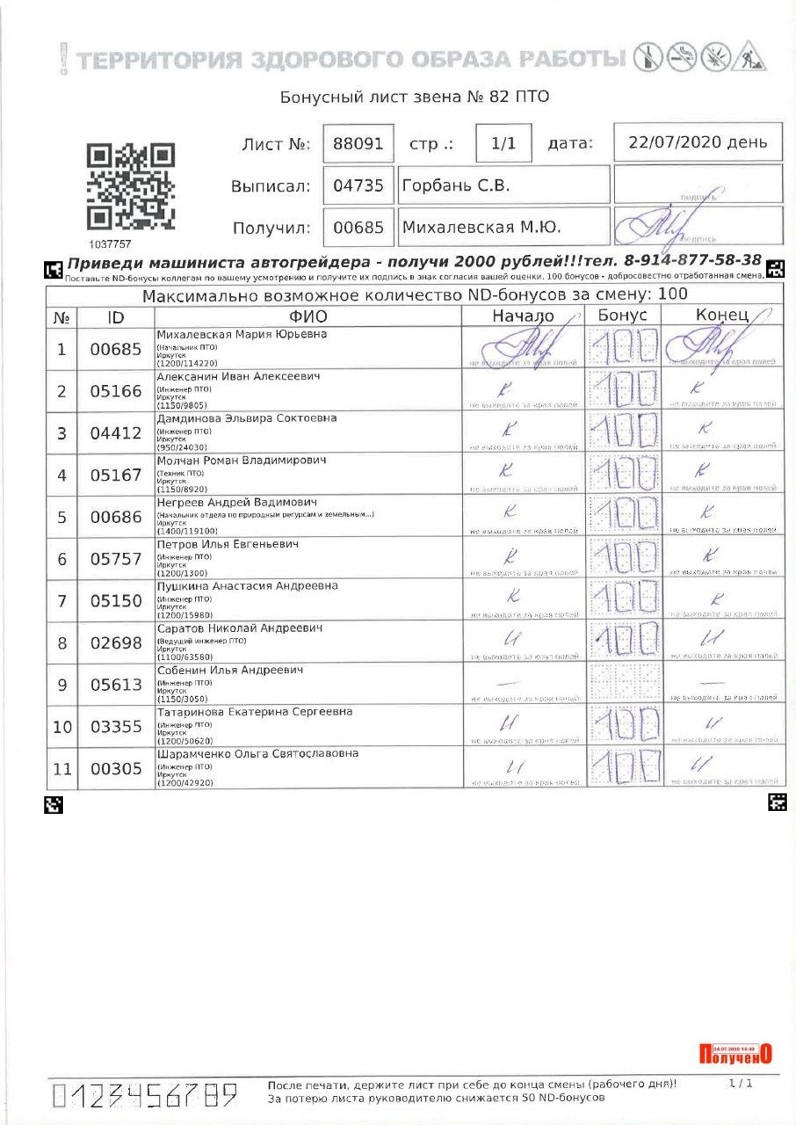 ! ТЕРРИТОРИЯ ЗДОРОВОГО ОБРАЗА РАБОТЫ
Бонусный лист звена № 82 ПТО
Лист №: 88091 стр .: 1/1 дата: 22/07/2020 день
Выписал: 04735 Горбань С.В. подпись
Получил: 00685 Михалевская М.Ю. подпись
1037757
Приведи машиниста автогрейдера - получи 2000 рублей!!!тел. 8-914-877-58-38
Поставьте ND-бонусы коллегам по вашему усмотрению и получите их подпись в знак согласия вашей оценки. 100 бонусов - добросовестно отработанная смена.
Максимально возможное количество ND-бонусов за смену: 100
№ ID ФИО Начало Бонус Конец
1 00685 Михалевская Мария Юрьевна 100
(Начальник ПТО)
Иркутск
(1200/114220) не выходите за края полей не выходите за края полей
2 05166 Алексанин Иван Алексеевич К 100 К
(Инженер ПТО)
Иркутск
(1150/9805) не выходите за края полей не выходите за края полей
3 04412 Дамдинова Эльвира Соктоевна К 100 К
(Инженер ПТО)
Иркутск
(950/24030) не выходите за края полей не выходите за края полей
4 05167 Молчан Роман Владимирович К 100 К
(Техник ПТО)
Иркутск
(1150/8920) не выходите за края полей не выходите за края полей
5 00686 Негреев Андрей Вадимович К 100 К
(Начальник отдела по природным ресурсам и земельным...)
Иркутск
(1400/119100) не выходите за края полей не выходите за края полей
6 05757 Петров Илья Евгеньевич К 100 К
(Инженер ПТО)
Иркутск
(1200/1300) не выходите за края полей не выходите за края полей
7 05150 Пушкина Анастасия Андреевна К 100 К
(Инженер ПТО)
Иркутск
(1200/15980) не выходите за края полей не выходите за края полей
8 02698 Саратов Николай Андреевич И 100 И
(Ведущий инженер ПТО)
Иркутск
(1100/63580) не выходите за края полей не выходите за края полей
9 05613 Собенин Илья Андреевич — —
(Инженер ПТО)
Иркутск
(1150/3050) не выходите за края полей не выходите за края полей
10 03355 Татаринова Екатерина Сергеевна И 100 И
(Инженер ПТО)
Иркутск
(1200/50620) не выходите за края полей не выходите за края полей
11 00305 Шарамченко Ольга Святославовна И 100 И
(Инженер ПТО)
Иркутск
(1200/42920) не выходите за края полей не выходите за края полей
ПолученО
0123456789 После печати, держите лист при себе до конца смены (рабочего дня)! 1/1
За потерю листа руководителю снижается 50 ND-бонусов